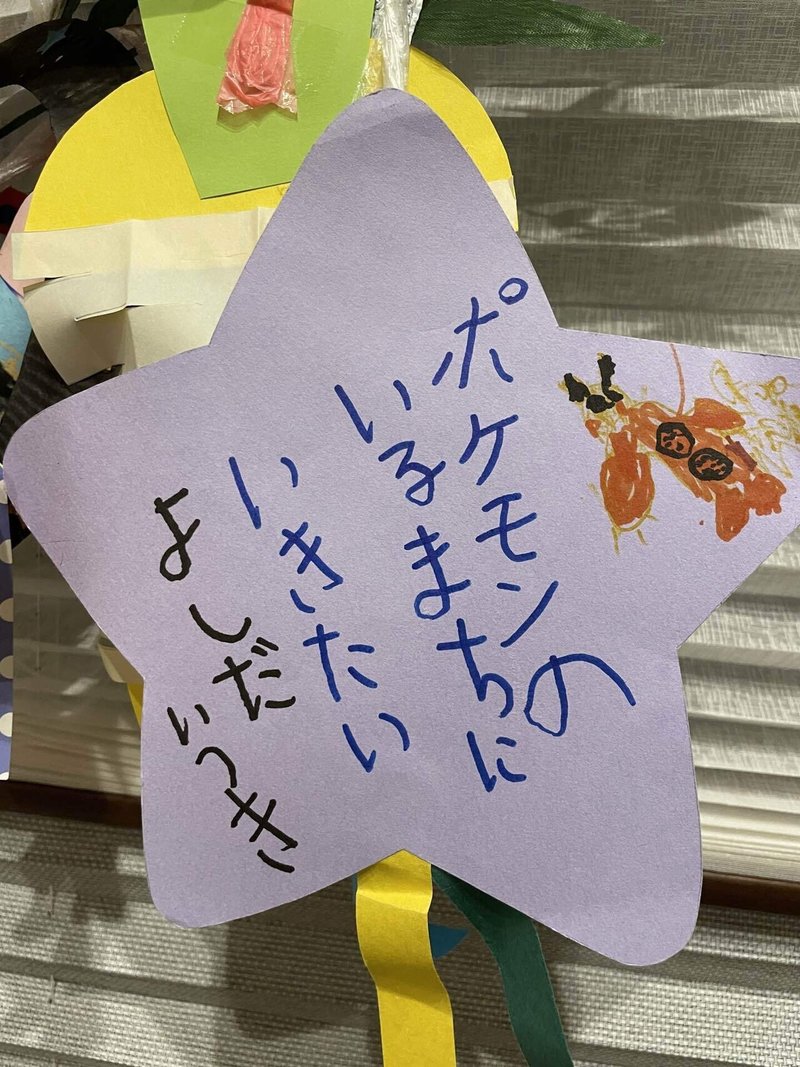 ポケモンの
いるまちに
いきたい
よしだいつき